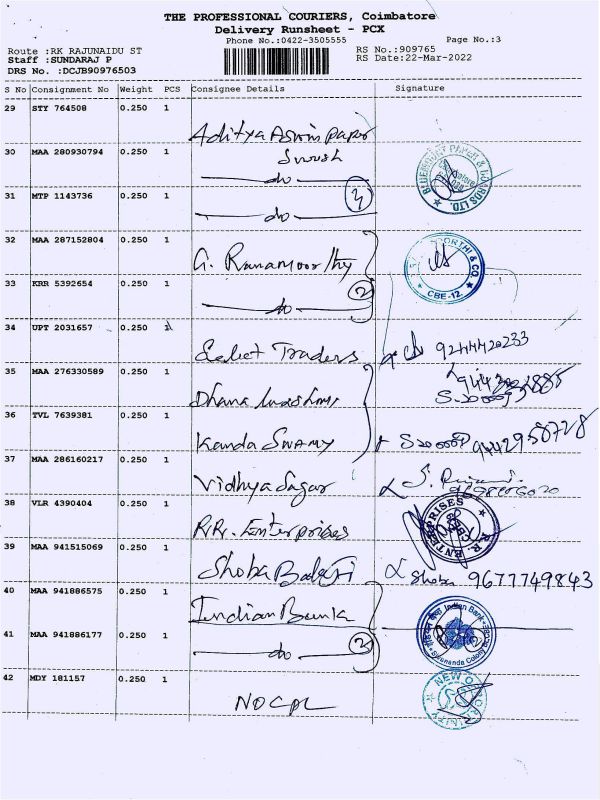 THE PROFESSIONAL COURIERS, Coimbatore
Delivery Runsheet - PCX
Phone No.:0422-3505555
Page No.:3
Route :RK RAJUNAIDU ST
RS No.:909765
Staff :SUNDARAJ P
RS Date:22-Mar-2022
DRS No. :DCJB90976503
S No Consignment No Weight PCS Consignee Details Signature
29 STY 764508 0.250 1
Aditya Aswin Paper
30 MAA 280930794 0.250 1
do
31 MTP 1143736 0.250 1
do
3
32 MAA 287152804 0.250 1
G. Ramamoorthy
CBE-12
33 KRR 5392654 0.250 1
do
2
34 UPT 2031657 0.250
Select Traders 9244420233
35 MAA 276330589 0.250 1
36 TVL 7639381 0.250 1
Kanda SWAMY
37 MAA 286160217 0.250 1
Vidhya Sagar
38 VLR 4390404 0.250 1
R.R. Enterprises
R.R. ENTERPRISES
39 MAA 941515069 0.250 1
Shoba Balaji Shoba 9677749843
40 MAA 941886575 0.250 1
Indian Bank
Indian Bank
41 MAA 941886177 0.250 1
do
2
42 MDY 181157 0.250 1